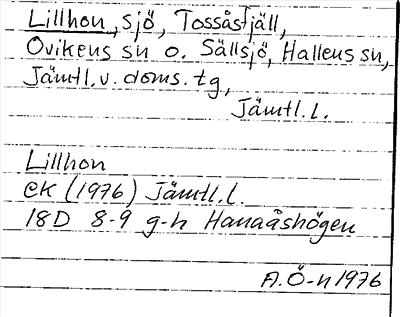 Lillhon, sjö, Tossåsfjäll,
Ovikens sn o. Sällsjö, Hallens sn,
Jämtl.v. doms. tg,
Jämtl.l.
Lillhon
ek (1976) Jämtl.l.
18D 8-9 g-h Hanaåshögen
A.Ö-n 1976